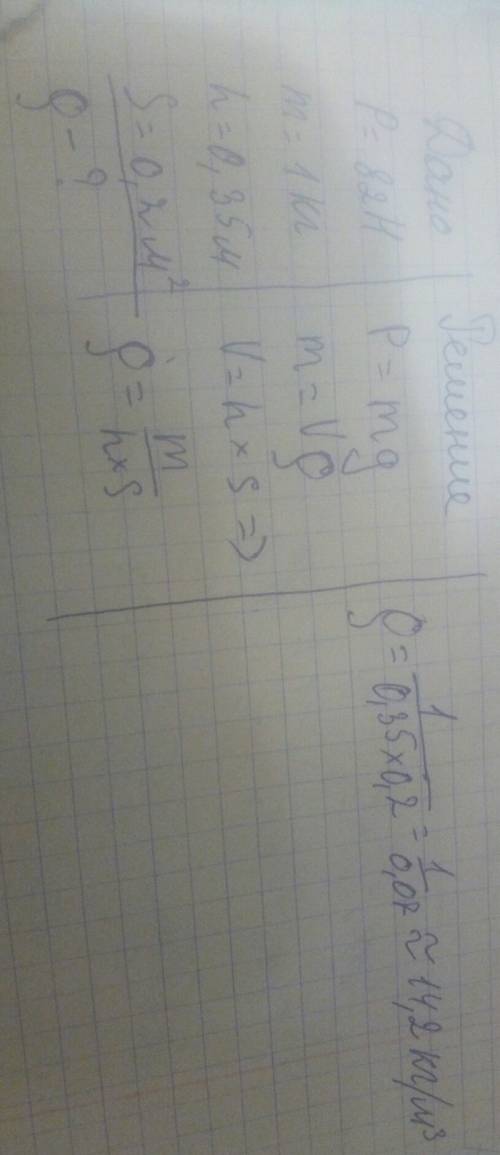 Дано
P = 82Н
m = 1 кг
h = 0,35м
S = 0,2м²
ρ - ?
Решение
P = mg
m = Vρ
V = h × S =>
ρ = m / h×S
ρ = 1 / 0,35×0,2 = 1 / 0,07 ≈ 14,2 кг/м³